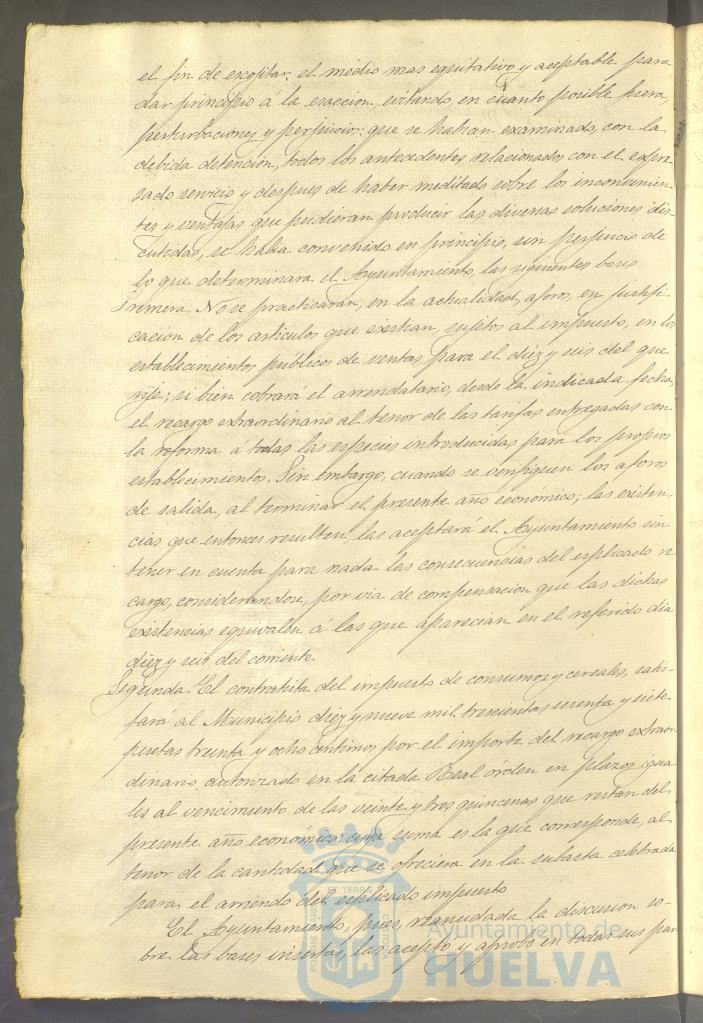 el fin de escojitar el medio mas equitativo y aceptable para
dar principio á la exaccion, evitando, en cuanto posible fuera,
perturbaciones y perjuicios: que se habian examinado, con la
debida detencion, todos los antecedentes relacionados con el expre-
sado servicio y despues de haber meditado sobre los inconvenien-
tes y ventajas que pudieran producir las diversas soluciones dis-
cutidas, se habia convenido en principio, sin perjuicio de
lo que determinara el Ayuntamiento, las siguientes bases
Primera. No se practicarán, en la actualidad, aforos, en justifi-
cacion de los articulos que existian, sujetos al impuesto, en los
establecimientos públicos de ventas para el diez y seis del que
rije; si bien cobrará el arrendatario, desde la indicada fecha,
el recargo extraordinario al tenor de las tarifas entregadas con
la reforma á todas las especies introducidas para los propios
establecimientos. Sin embargo, cuando se verifiquen los aforos
de salida, al terminar el presente año economico; las existen-
cias que entonces resulten, las aceptará el Ayuntamiento sin
tener en cuenta para nada las consecuencias del esplicado re
cargo, considerandose, por via de compensacion que las dichas
existencias equivalen á las que aparecian en el referido dia
diez y seis del corriente.
Segunda. El contratista del impuesto de consumos y cereales, satis-
fara al Municipio diez y nueve mil trescientas sesenta y siete
pesetas treinta y ocho centimos por el importe del recargo extraor
dinario, autorizado en la citada Real órden en plazos igua
les al vencimiento de las veinte y tres quincenas que restan del
presente año económico; cuya suma es la que corresponde, al
tenor de la cantidad que se ofreciera en la subasta celebrada
para el arriendo del esplicado impuesto
El Ayuntamiento, pues, reanudada la discusion so-
bre las bases insertas, las aceptó y aprobó en todas sus par
Ayuntamiento de
HUELVA